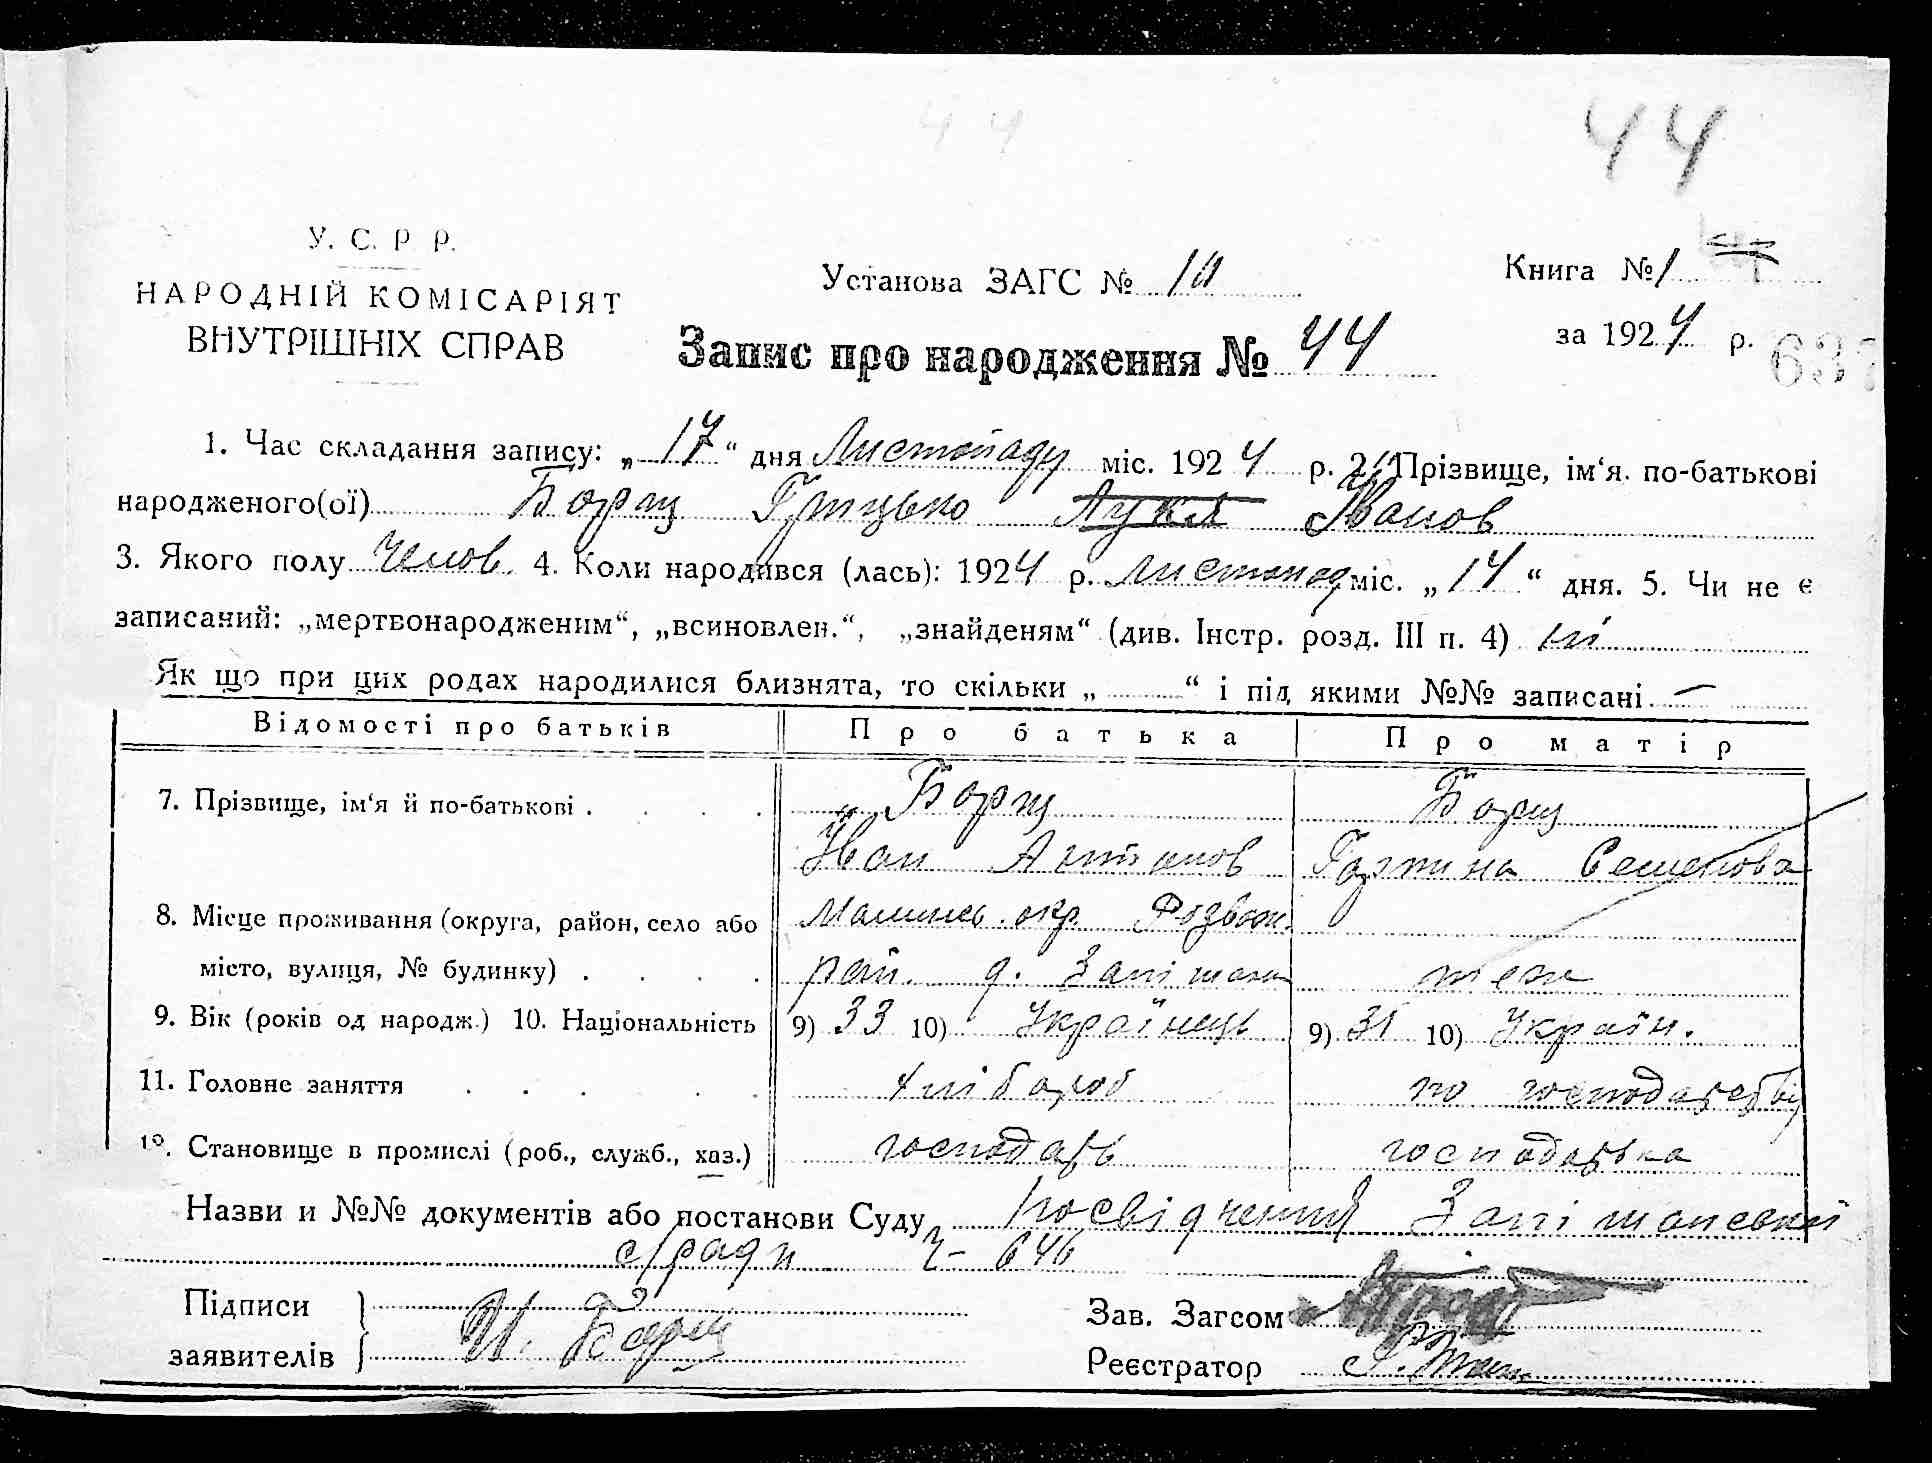 44
У. С. Р. Р.
НАРОДНІЙ КОМІСАРІЯТ
ВНУТРІШНІХ СПРАВ
Установа ЗАГС № 10
Книга № 1
за 1924 р.
637
Запис про народження № 44
1. Час складання запису: „ 17 “ дня Листопаду міс. 1924 р. 2. Прізвище, ім‘я. по-батькові
народженого(ої) Борщ Грицько Іванов
3. Якого полу Челов. 4. Коли народився (лась): 1924 р. Листопад міс. „ 14 “ дня. 5. Чи не є
записаний: „мертвонародженим“, „всиновлен.“, „знайденям“ (див. Інстр. розд. III п. 4) ні
Як що при цих родах народилися близнята, то скільки „ “ і під якими №№ записані —
Відомості про батьків Про батька Про матір
7. Прізвище, ім‘я й по-батькові . . . . Борщ Борщ
Іван Антонов Горпина Семенова
8. Місце проживання (округа, район, село або Малинсь. окр. Розваж.
місто, вулиця, № будинку) . . . . рай. с. теж
9. Вік (років од народж.) 10. Національність 9) 33 10) Українець 9) 31 10) Україн.
11. Головне заняття . . . . . хлібороб по господарству
12. Становище в промислі (роб., служб., хаз.) господарь господарька
Назви и №№ документів або постанови Суду посвідчення
с/ради ч- 646
Підписи
заявителів И. Борщ
Зав. Загсом
Реєстратор